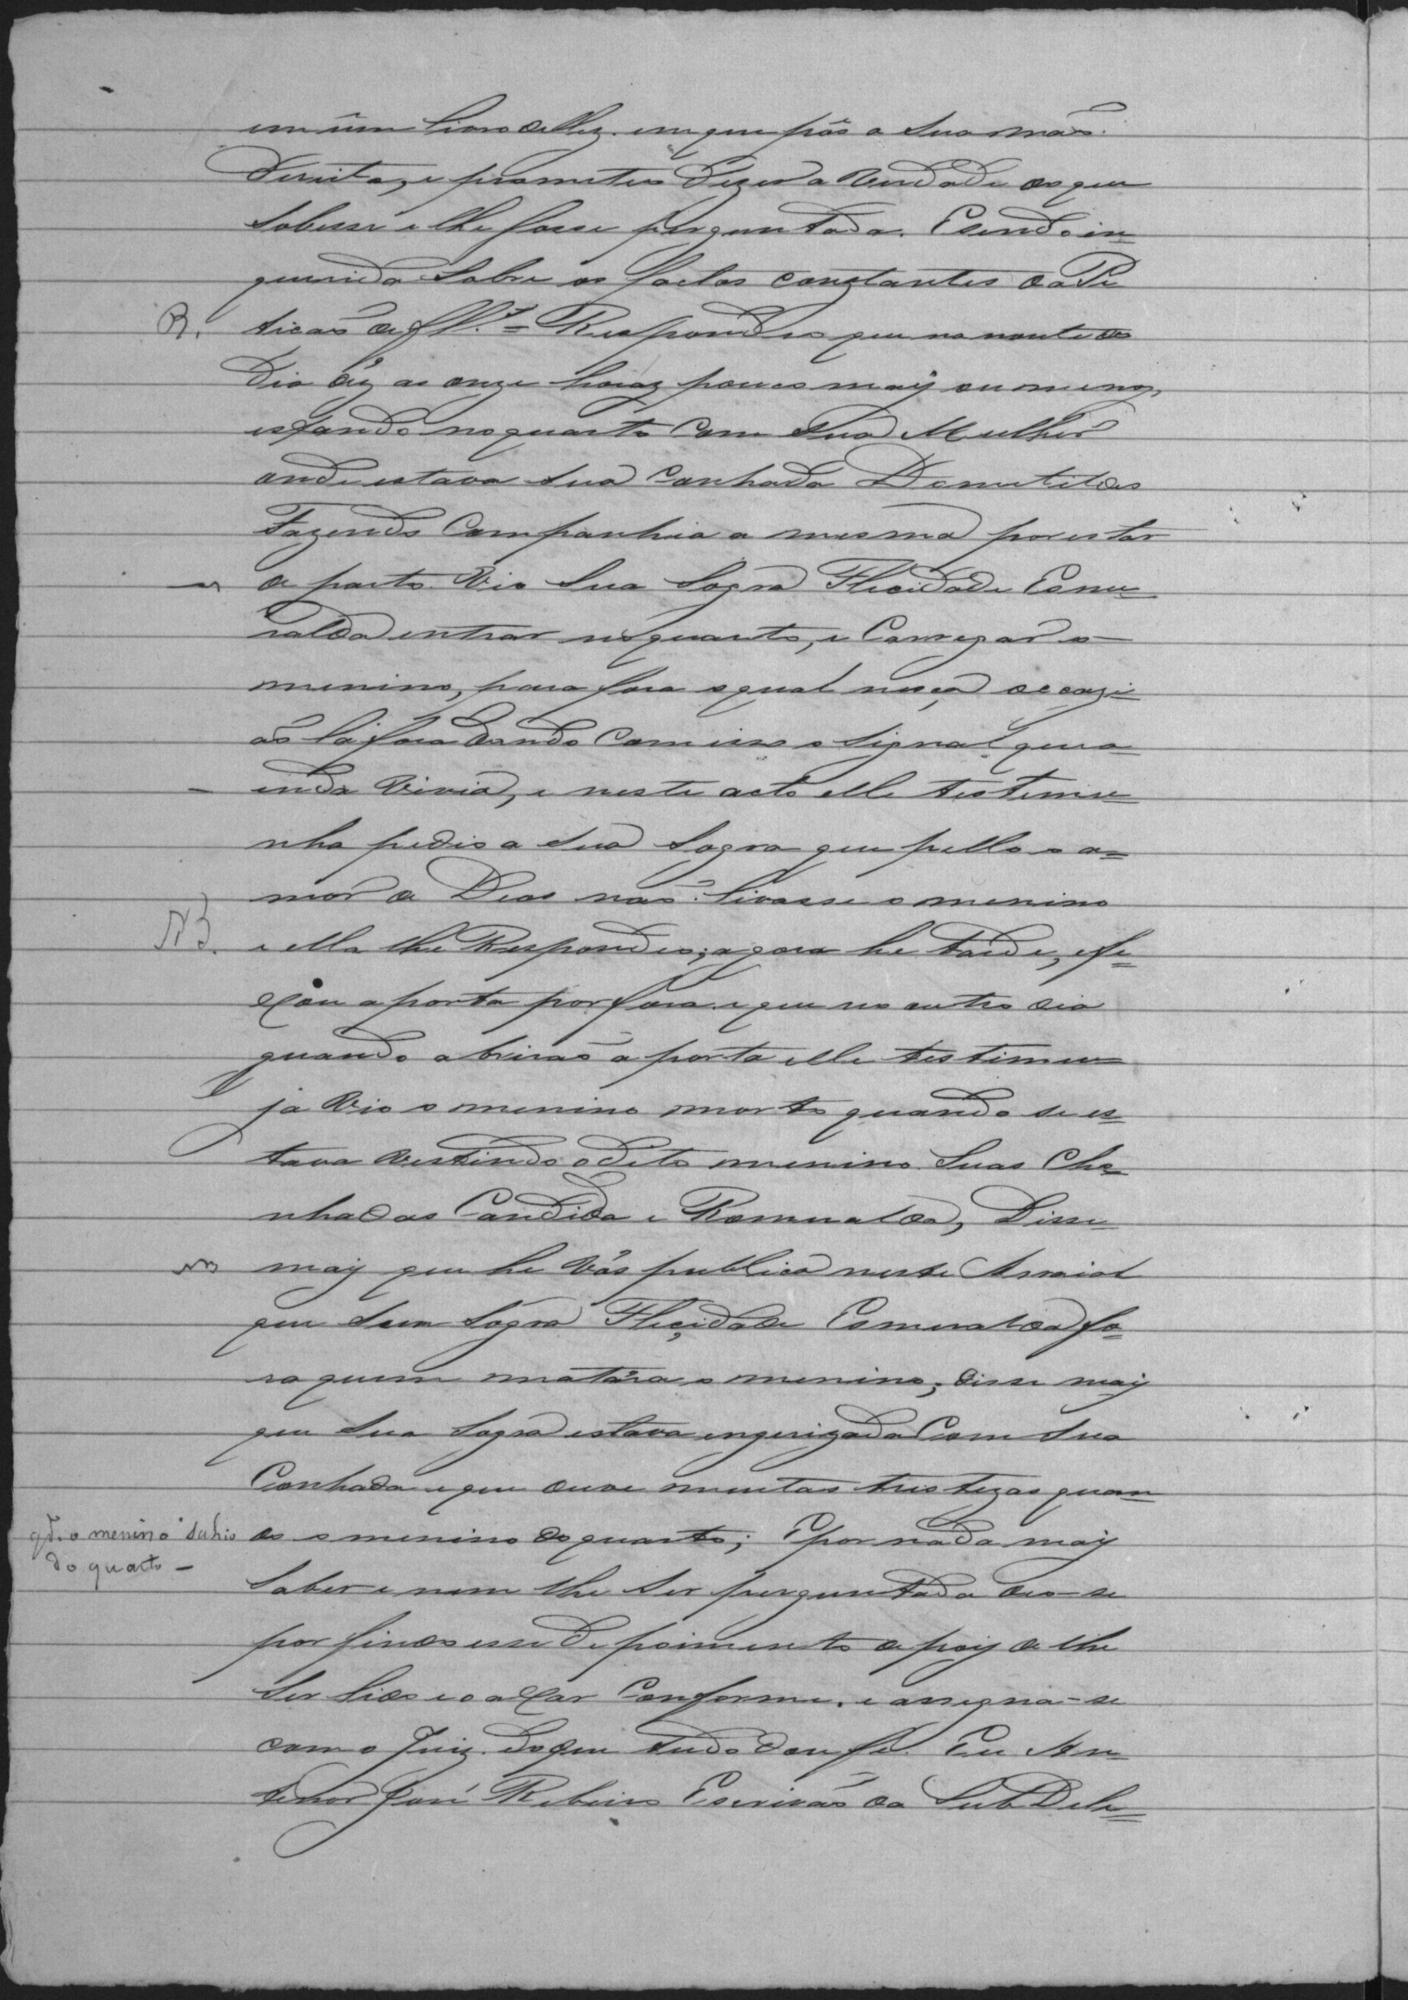 em um Livro dellez. em que pôs a Sua maõ
direita, e prometeo Dizer a Verdade do que
Sobesse e lhe fosse perguntada. Esendo in=
querida Sobre os factos constantes da Pe
R. ticaõ de fl.ᵃ = Respondeo que na noute do
Dia dêz as onze horaz pouco maiz ou menoz,
estando no quarto Com Sua Mulher
onde estava Sua Conhada Demetildes
Fazendo Companhia a mesma por estar
de parto. Vio Sua Sogra Flecidade Esme=
ralda entrar no quarto, e Carregar o
menino, para fora o qual nessa occazi=
aõ lá fora dando Com isso o Signal que a
inda Vivia, e neste acto elle testemu=
nha pedio a Sua Sogra que pello o a=
mor de Deos naõ tirasse o menino
NB. e ella lhe Respondeo, agora he tarde, e fe=
xou a porta por fora. e que no outro dia
quando abriraõ a porta elle testimu=
ja Vio o menino morto quando se es=
tava Vestindo o dito menino Suas Cho=
nhadas Candida e Romualda, Disse
maiz que he Vós publica neste Arraial
que Sua Sogra Fleçidade Esmeralda fo=
ra quem matára o menino; disse maiz
que Sua Sogra estava engerizada Com Sua
Conhada e que ouve muitas tristezas quan=
do o menino do quarto; E por nada maiz
qd.o o menino sahio
do quarto -
Saber e nem lhe Ser perguntada deo-se
por findo esse Depoimento depoiz de lhe
Ser lido e o axar Conforme. e assegna-se
com o Juiz. do que tudo dou fe. Eu An=
tenor José Ribeiro Escrivaõ da Sub Dele=